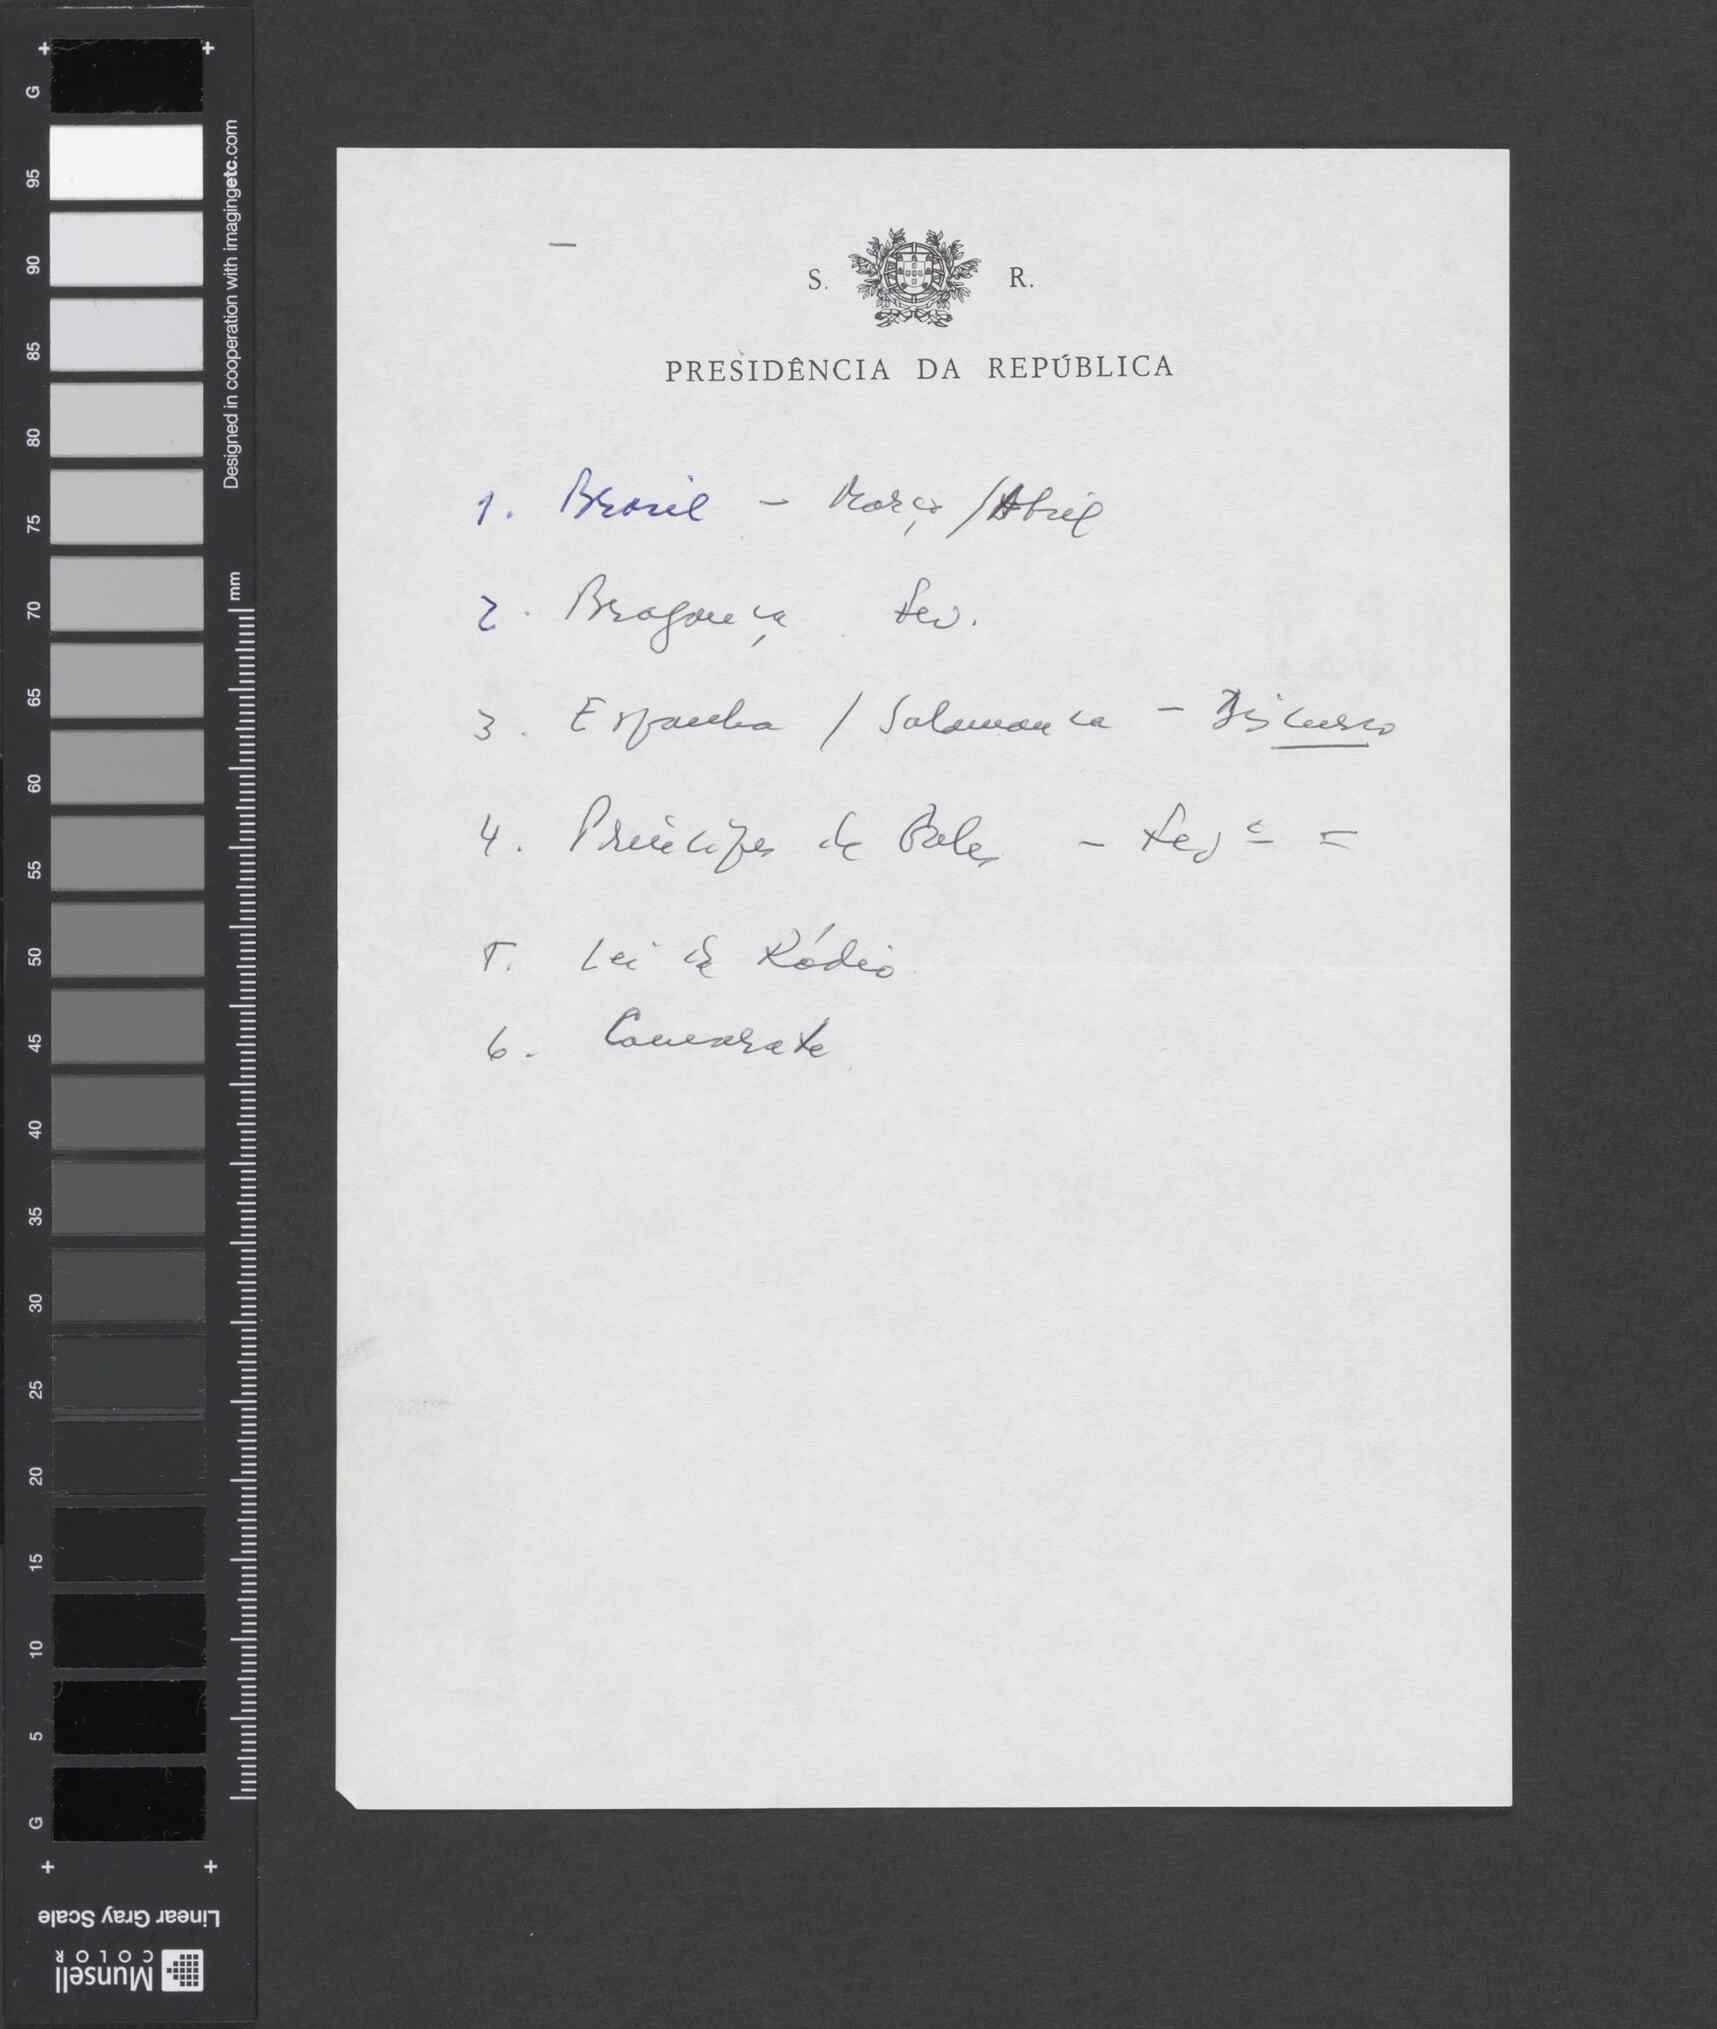 S. R.
PRESIDÊNCIA DA REPÚBLICA
1. Brasil - Março / Abril
2. Bragança Fev.
3. Espanha / Salamanca - Discurso
4. Príncipes de Gales - Fev
5. Lei da Rádio
6. Camarate
G
95
90
85
80
75
70
65
60
55
50
45
40
35
30
25
20
15
10
5
G
Designed in cooperation with imagingetc.com
mm
Linear Gray Scale
Munsell
COLOR